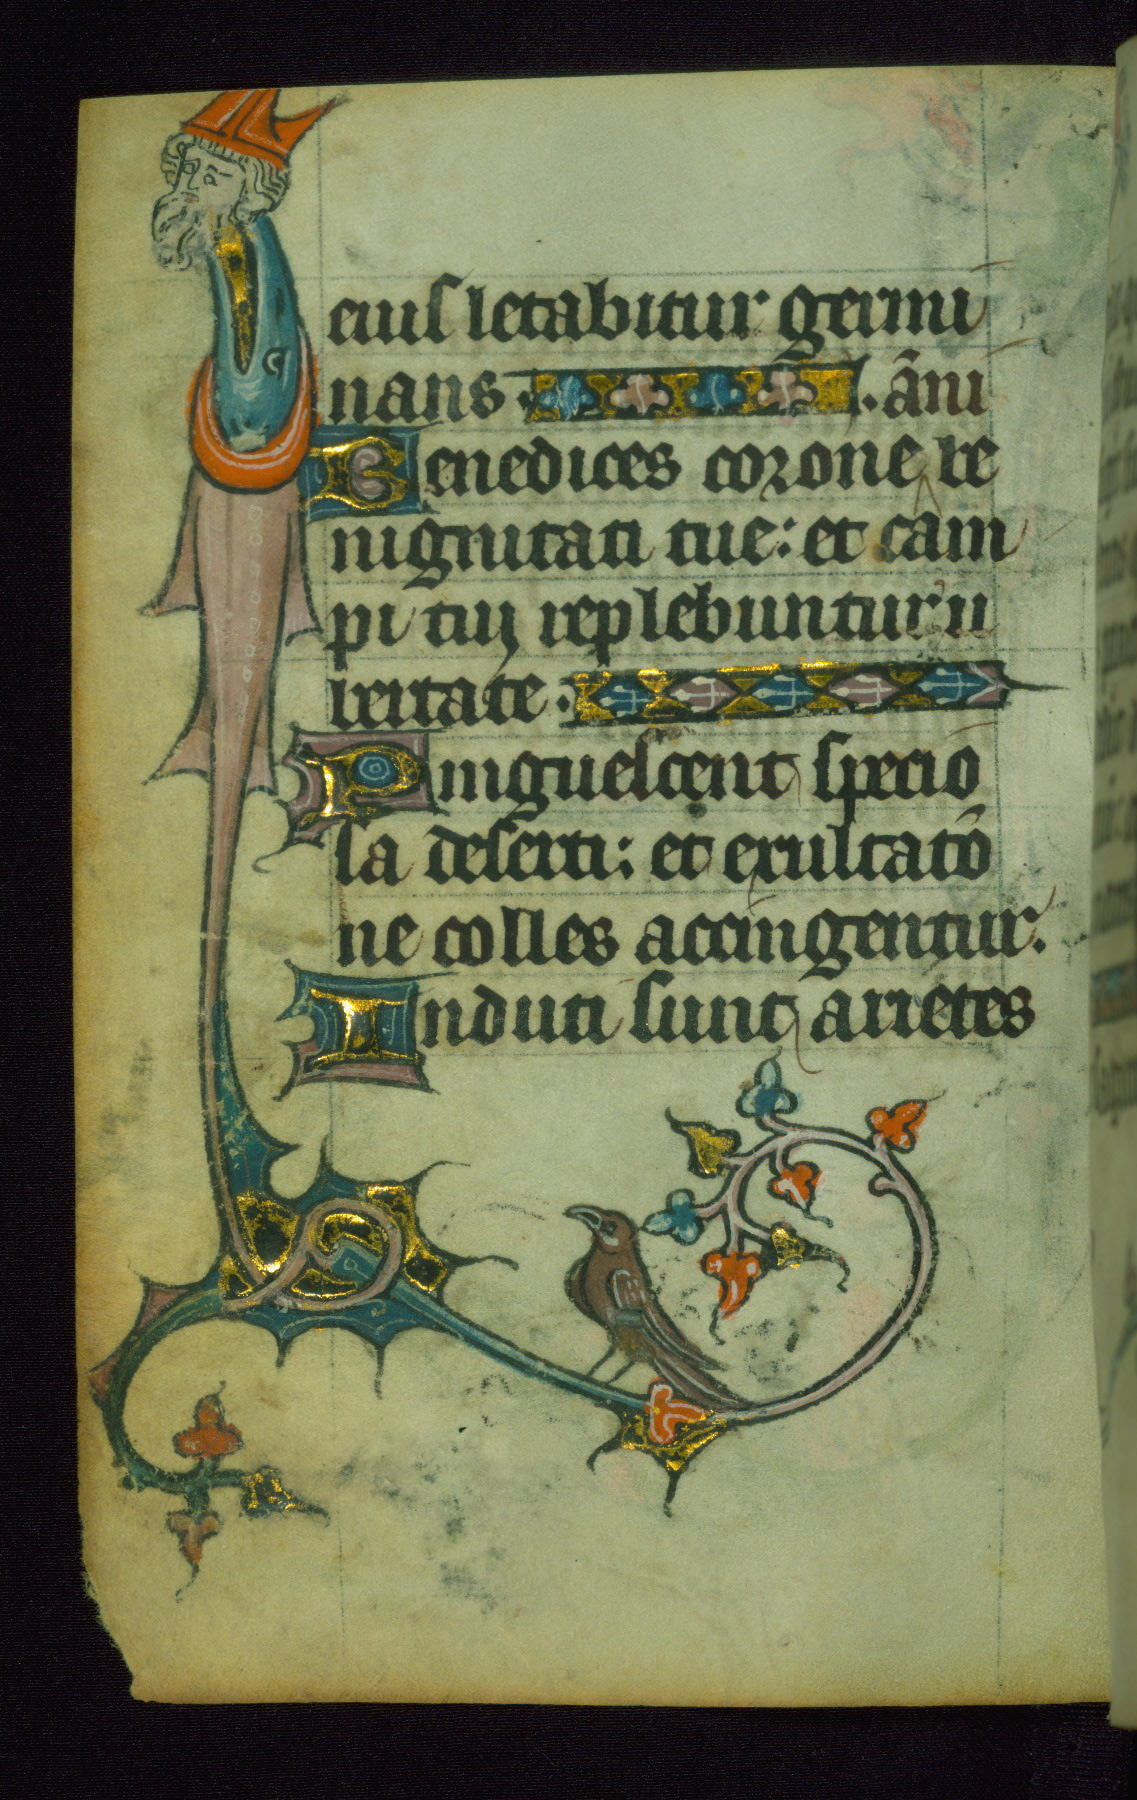 eius letabitur germi
nans . āni
Benedices corone be
nignitati tue: et cam
pi tui replebuntur u
bertate.
Pinguescent specio
sa deserti: et exultatō
ne colles accingentur.
Induti sunt arietes